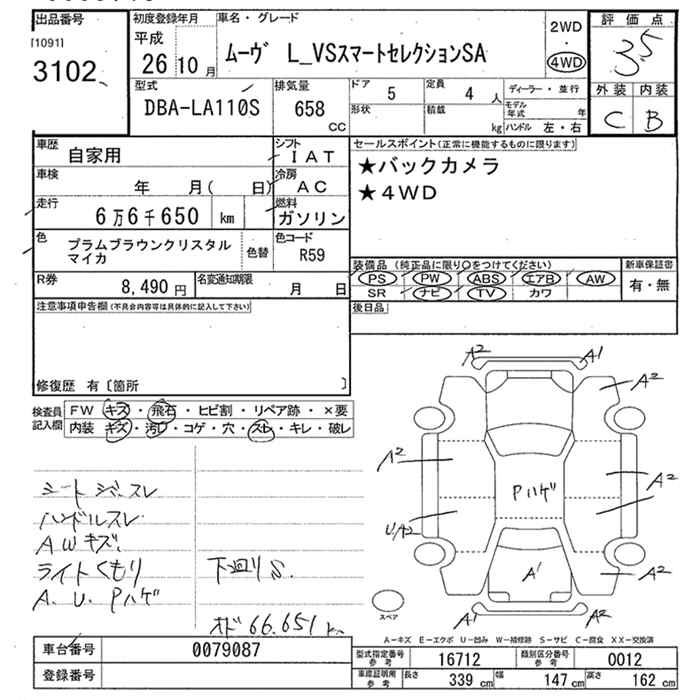 出品番号
[1091]
3102
初度登録年月
平成
26 10 月
車名・グレード
ムーヴ L_VSスマートセレクションSA
2WD
・
4WD
評価点
3.5
外装 内装
C B
型式
DBA-LA110S
排気量
658
CC
ドア 5
形状
定員 4 人
積載 kg
ディーラー・並行
モデル年式 年
ハンドル 左・右
車歴 自家用
シフト IAT
車検 年 月( 日)
冷房 AC
走行 6万6千650 km
燃料 ガソリン
色 プラムブラウンクリスタル
マイカ
色替
色コード R59
R券 8,490 円
名変通知期限 月 日
セールスポイント(正常に機能するものに限ります)
★バックカメラ
★4WD
装備品 (純正品に限り○をつけてください)
PS PW ABS エアB AW
SR ナビ TV カワ
新車保証書
有・無
後日品
注意事項申告欄(不具合内容等は具体的に記入して下さい)
修復歴 有〔箇所 〕
検査員
記入欄
FW キズ・飛石・ヒビ割・リペア跡・×要
内装 キズ・汚レ・コゲ・穴・スレ・キレ・破レ
シートシミ.スレ
ハンドルスレ
AWキズ.
ライトくもり
A. U. Pハゲ
下廻りS.
オド 66.651 km
A2 A1
A2
A2
Pハゲ
A2
U/A2
A1
A2
A1 A2
スペア
A-キズ E-エクボ U-凹み W-補修跡 S-サビ C-腐食 XX-交換済
車台番号 0079087
登録番号
型式指定番号
参考
16712
類別区分番号
参考
0012
車庫証明用
参考
長さ 339 cm 幅 147 cm 高さ 162 cm